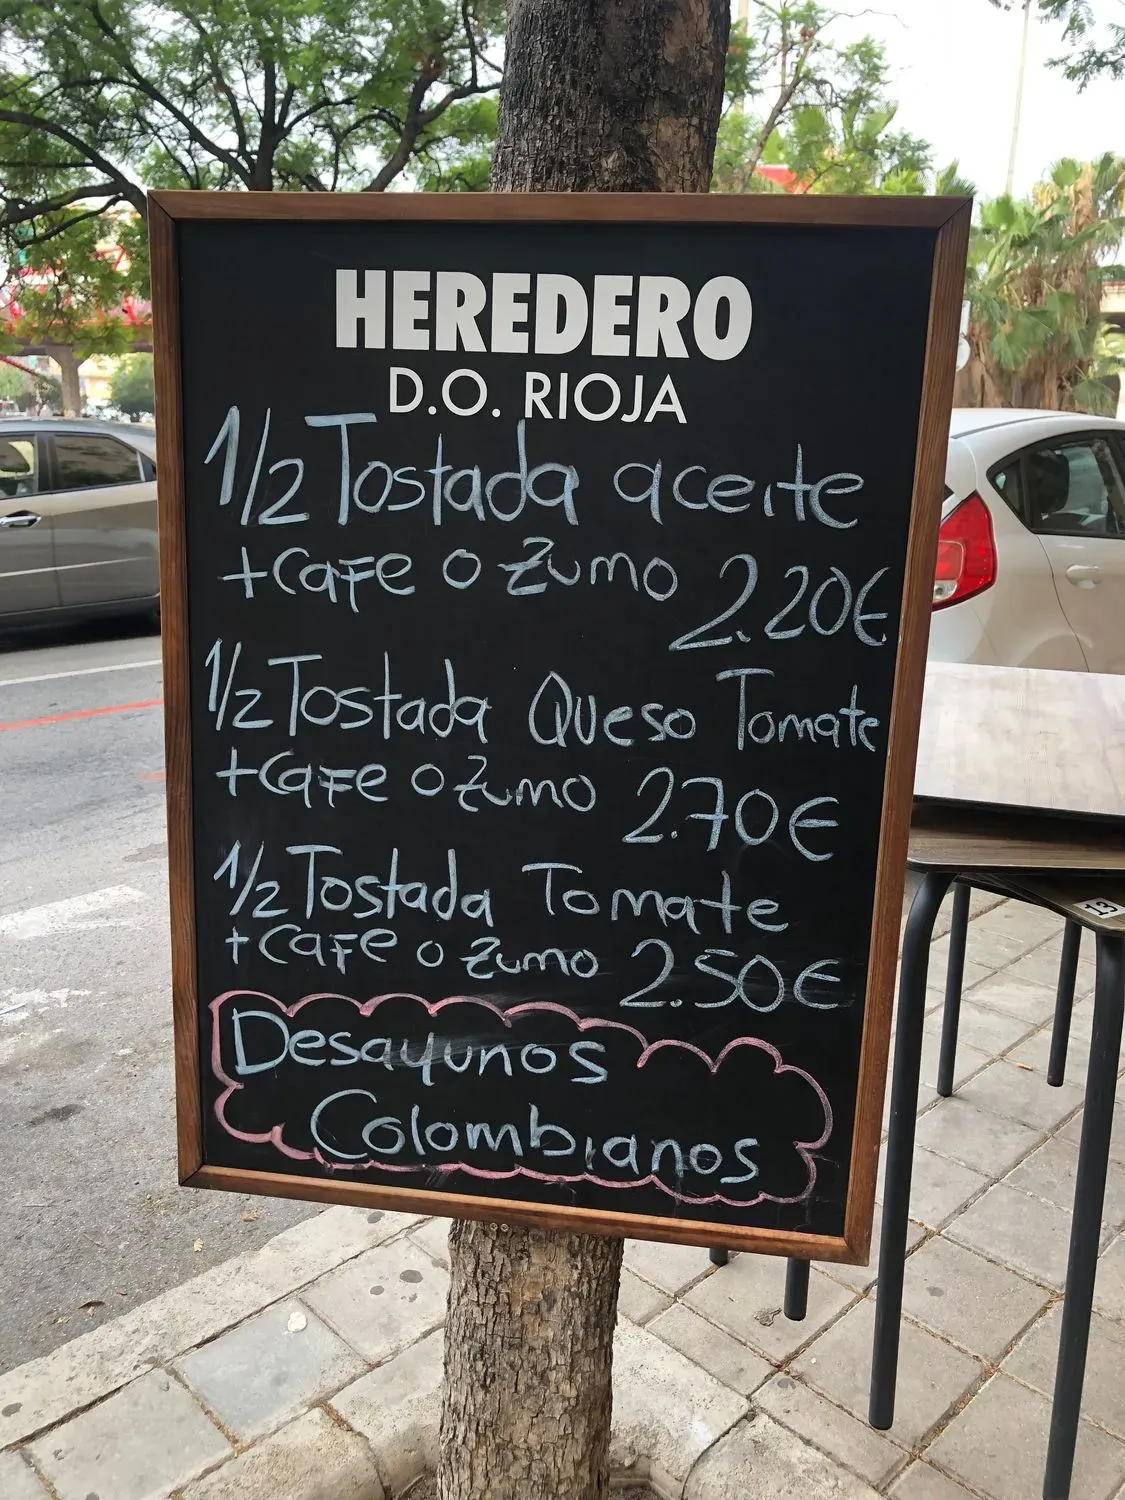 HEREDERO
D.O. RIOJA
1/2 Tostada aceite
+Cafe o Zumo 2.20€
1/2 Tostada Queso Tomate
+Cafe o Zumo 2.70€
1/2 Tostada Tomate
+Cafe o Zumo 2.50€
Desayunos
Colombianos
13